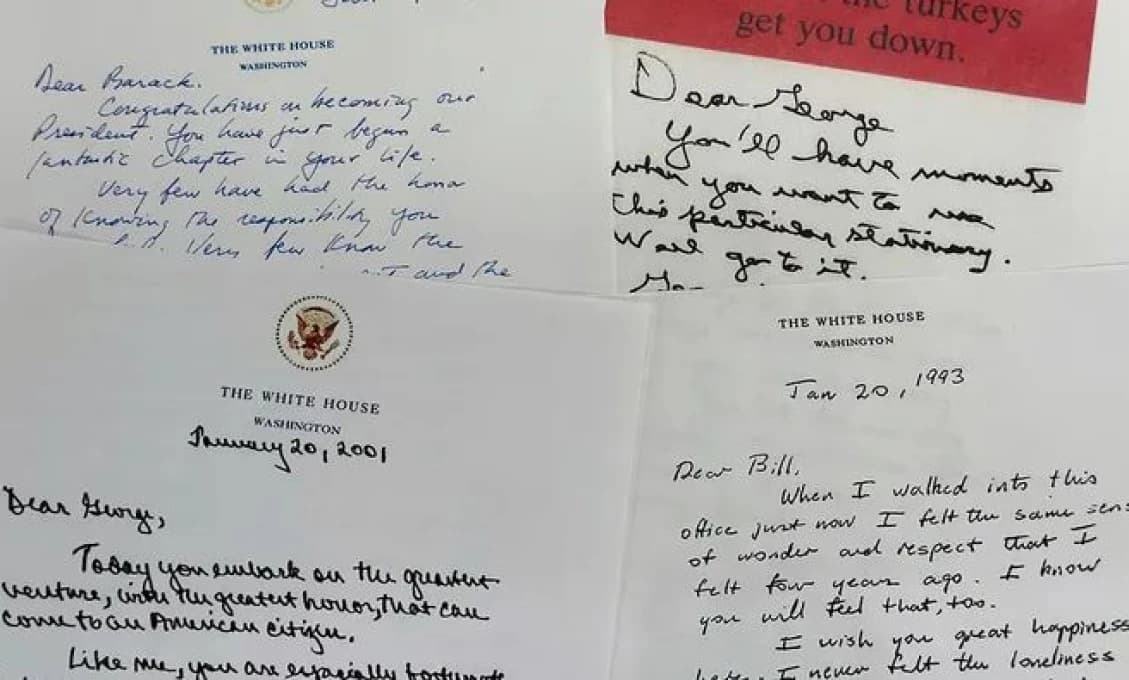 THE WHITE HOUSE
WASHINGTON
Dear Barack.
Congratulations on becoming our
President. You have just begun a
fantastic chapter in your life.
Very few have had the honor
of knowing the responsibility you
Very few know the
and the
turkeys
get you down.
Dear George
You'll have moments
when you want to use
this particular stationary.
Well go to it.
THE WHITE HOUSE
WASHINGTON
January 20, 2001
Dear George,
Today you embark on the greatest
venture, with the greatest honor, that can
come to an American citizen.
Like me, you are especially fortunate
THE WHITE HOUSE
WASHINGTON
Jan 20, 1993
Dear Bill,
When I walked into this
office just now I felt the same sens
of wonder and respect that I
felt four years ago. I know
you will feel that, too.
I wish you great happiness
I never felt the loneliness